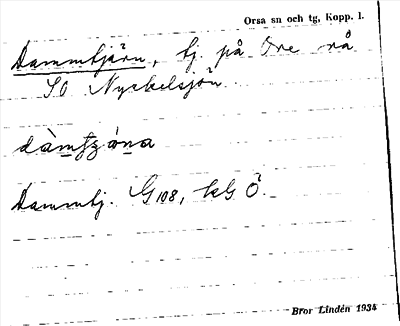 Orsa sn och tg, Kopp. l.
Dammtjärn, tj. på Ore rå
SO Nyckelsjön
Dammtj. G 108, kG Ö.
Bror Lindén 1934